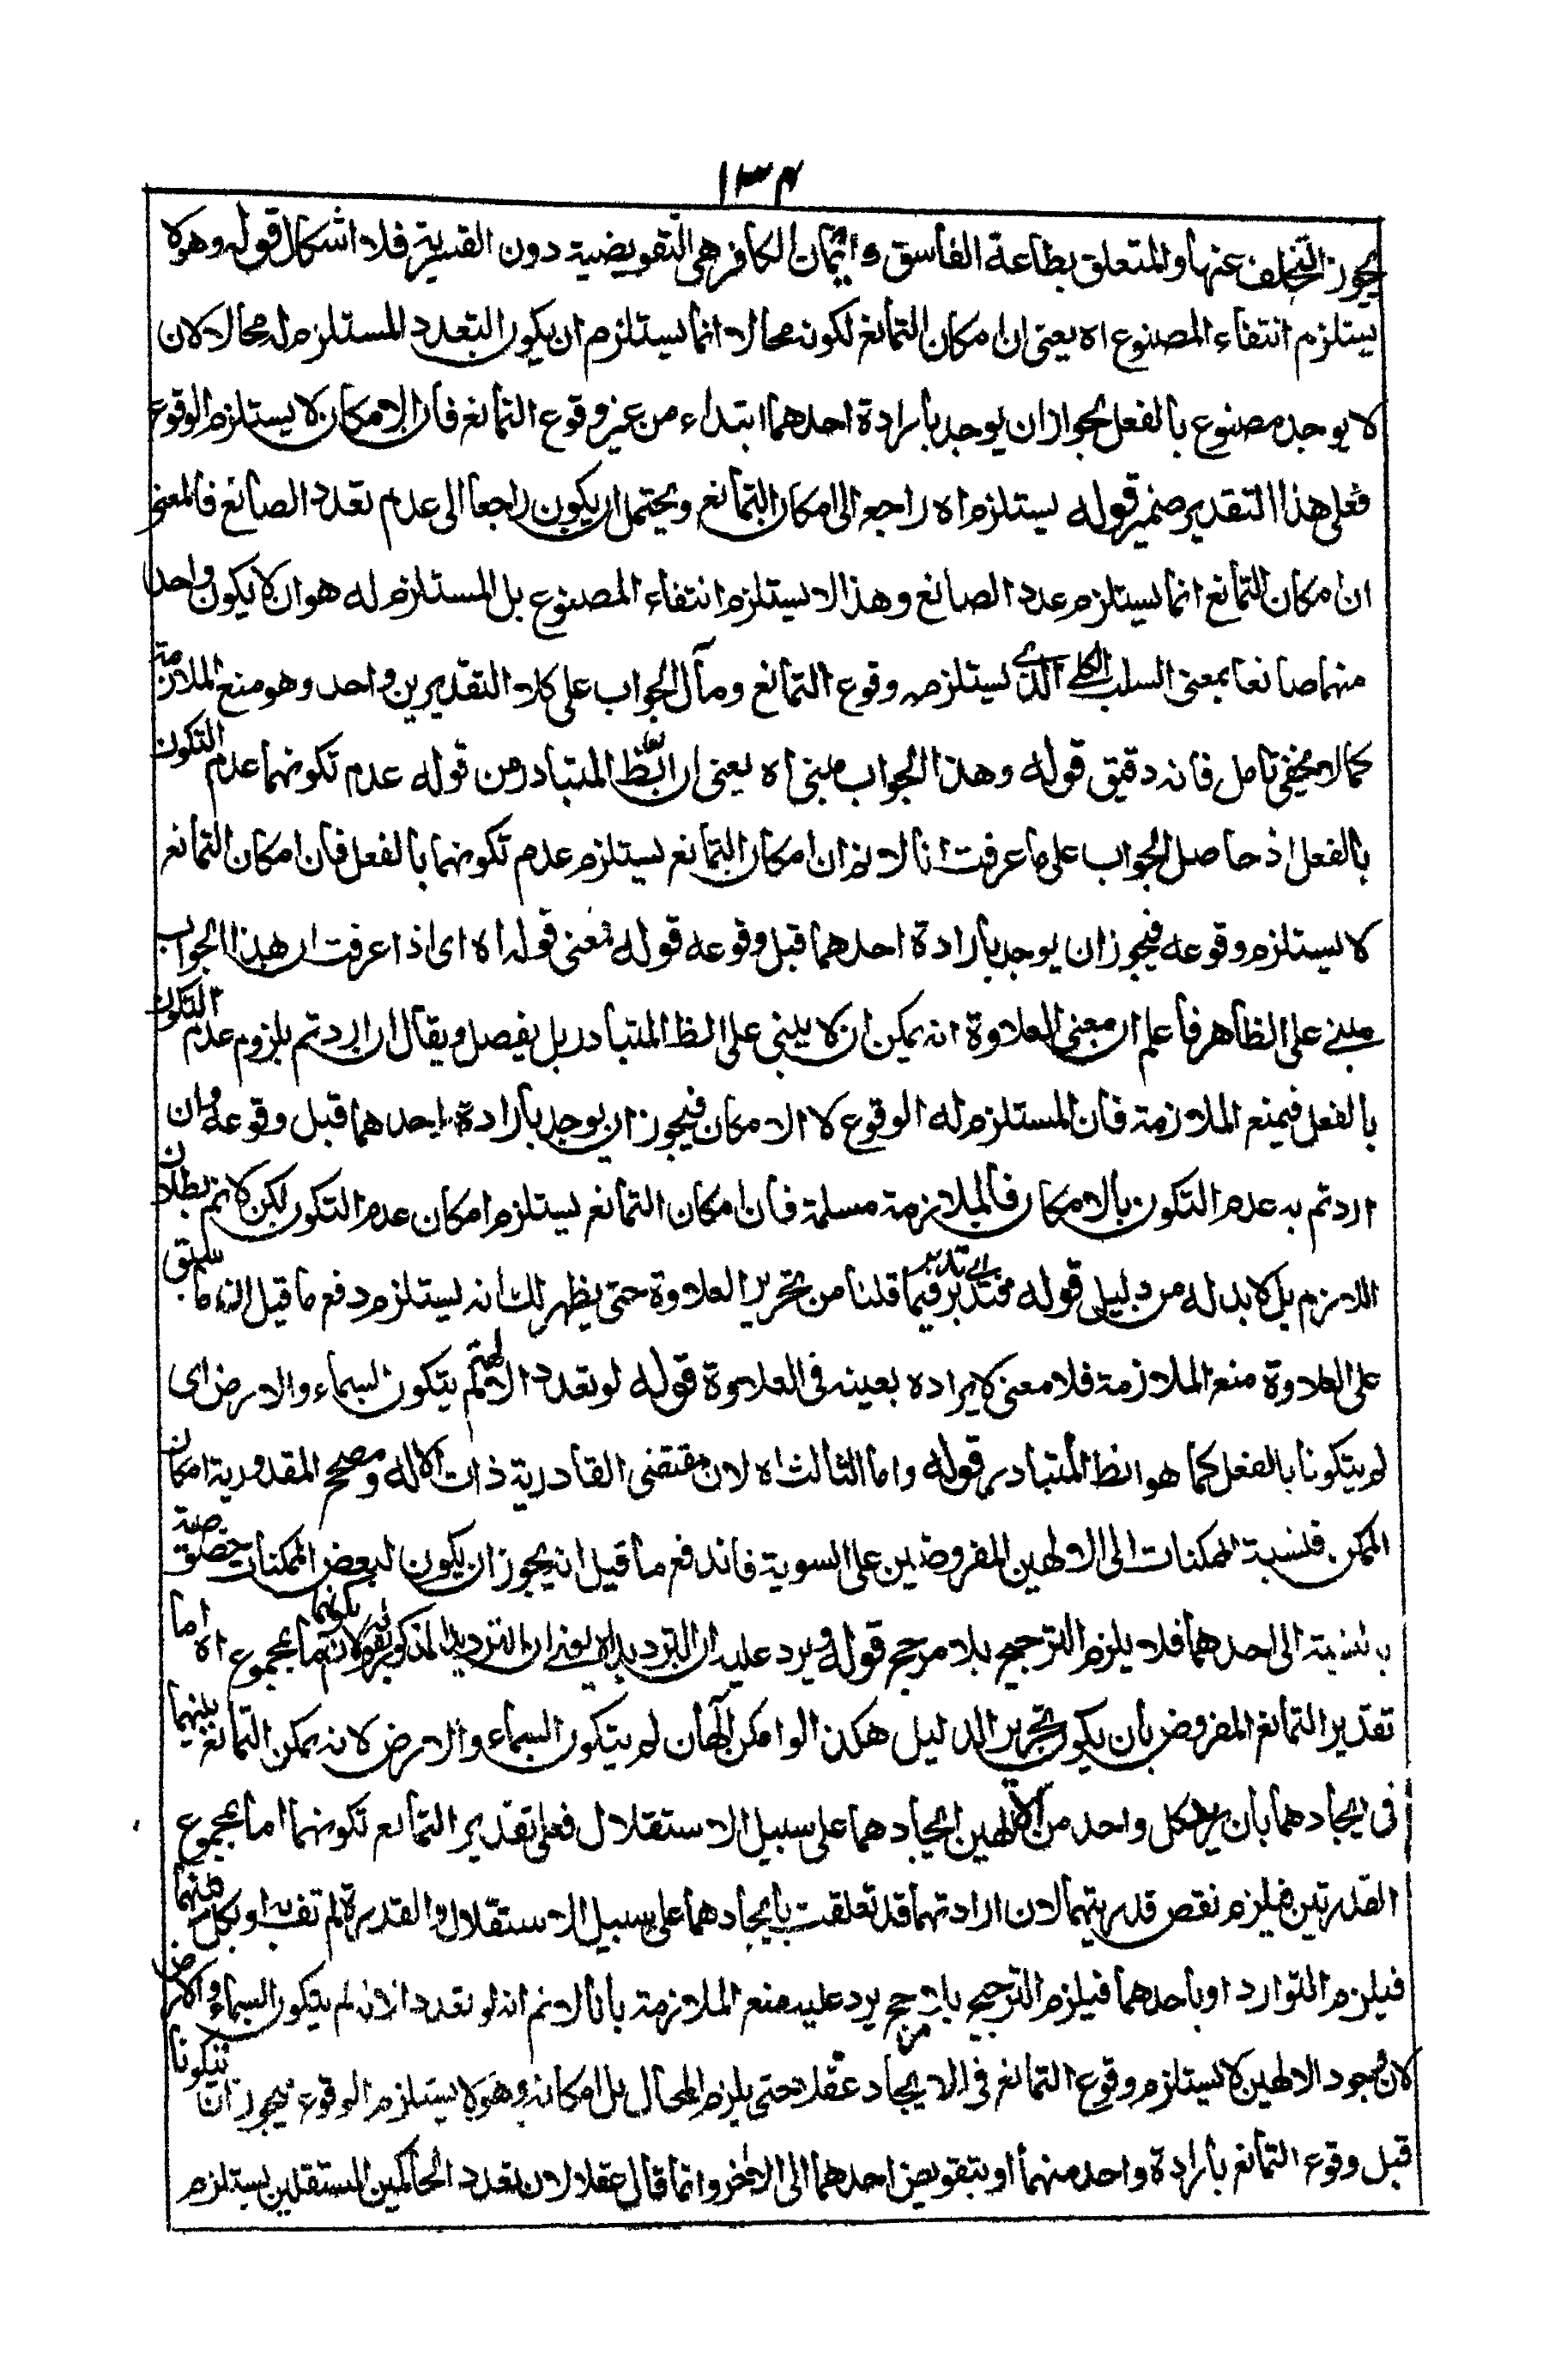 ١٣٤
يجوز التخلف عنها والمتعلق بطاعة الفاسق و ايمان الكافر هي التفويضية دون القسرية فلا اشكال قوله وهو لا
يستلزم انتفاء المصنوع اه يعنى ان امكان التمانع لكونه محالا انما يستلزم ان يكون التعدد المستلزم له محالا لان
لا يوجد مصنوع بالفعل لجواز ان يوجد بارادة احدهما ابتداء من غير وقوع التمانع فان الامكان لا يستلزم الوقوع
فعلى هذا التقدير ضمير قوله يستلزم اه راجع الى امكان التمانع ويحتمل ان يكون راجعا الى عدم تعدد الصانع فالمعنى
ان امكان التمانع انما يستلزم عدد الصانع وهذا لا يستلزم انتفاء المصنوع بل المستلزم له هو ان لا يكون واحد
منهما صانعا بمعنى السلب الكلى الذى يستلزمه وقوع التمانع ومآل الجواب على كلا التقديرين واحد وهو منع الملازمة
كما لا يخفى تامل فانه دقيق قوله وهذا الجواب مبنى اه يعنى ان الظ المتبادر من قوله عدم تكونهما عدم التكون
بالفعل اذ حاصل الجواب على ما عرفت انا لا نم ان امكان التمانع يستلزم عدم تكونهما بالفعل فان امكان التمانع
لا يستلزم وقوعه فيجوز ان يوجد بارادة احدهما قبل وقوعه قوله فمعنى قوله اه اى اذا عرفت ان هذا الجواب
مبنى على الظاهر فاعلم ان معنى العلاوة انه يمكن ان لا يبنى على الظ المتبادر بل يفصل ويقال ان اردتم بلزوم عدم التكون
بالفعل فيمنع الملازمة فان المستلزم له الوقوع لا الامكان فيجوز ان يوجد بارادة احدهما قبل وقوعه وان
اردتم به عدم التكون بالامكان فالملازمة مسلمة فان امكان التمانع يستلزم امكان عدم التكون لكن لا نم بطلان
اللازم بل لا بد له من دليل قوله فتدبر اى تدبر فيما قلنا من تحرير العلاوة حتى يظهر لك انه يستلزم دفع ما قيل ان ما سبق
على العلاوة منع الملازمة فلا معنى لايراده بعينه فى العلاوة قوله لو تعدد الاله لم يتكون السماء والارض اى
لم يتكونا بالفعل كما هو الظ المتبادر قوله واما الثالث اه لان مقتضى القادرية ذات الاله ومصحح المقدورية امكان
الممكن فنسبة الممكنات الى الالهين المفروضين على السوية فاندفع ما قيل انه يجوز ان يكون لبعض الممكنات خصوصية
بالنسبة الى احدهما فلا يلزم الترجيح بلا مرجح قوله ويرد عليه ان الترديد اه يعنى ان الترديد المذكور بقوله لان تكونهما اما بمجموع اه اما
تقدير التمانع المفروض بان يكون تحرير الدليل هكذا لو امكن الهان لم يتكون السماء والارض لانه يمكن التمانع بينهما
فى ايجادهما بان يريد كل واحد من الالهين ايجادهما على سبيل الاستقلال فعلى تقدير التمانع تكونهما اما بمجموع
القدرتين فيلزم نقص قدرتيهما لان ارادتهما قد تعلقت بايجادهما على سبيل الاستقلال والقدرة لم تف به او بكل منهما
فيلزم التوارد او باحدهما فيلزم الترجيح بلا مرجح يرد عليه منع الملازمة بانا لا نم انه لو تعدد الاله لم يتكون السماء والارض
لان وجود الالهين لا يستلزم وقوع التمانع فى الايجاد عقلا حتى يلزم المحال بل امكانه وهو لا يستلزم الوقوع فيجوز ان تتكونا
قبل وقوع التمانع بارادة واحد منهما او بتفويض احدهما الى الاخر وانما قال عقلا لان تعدد الحاكمين المستقلين يستلزم